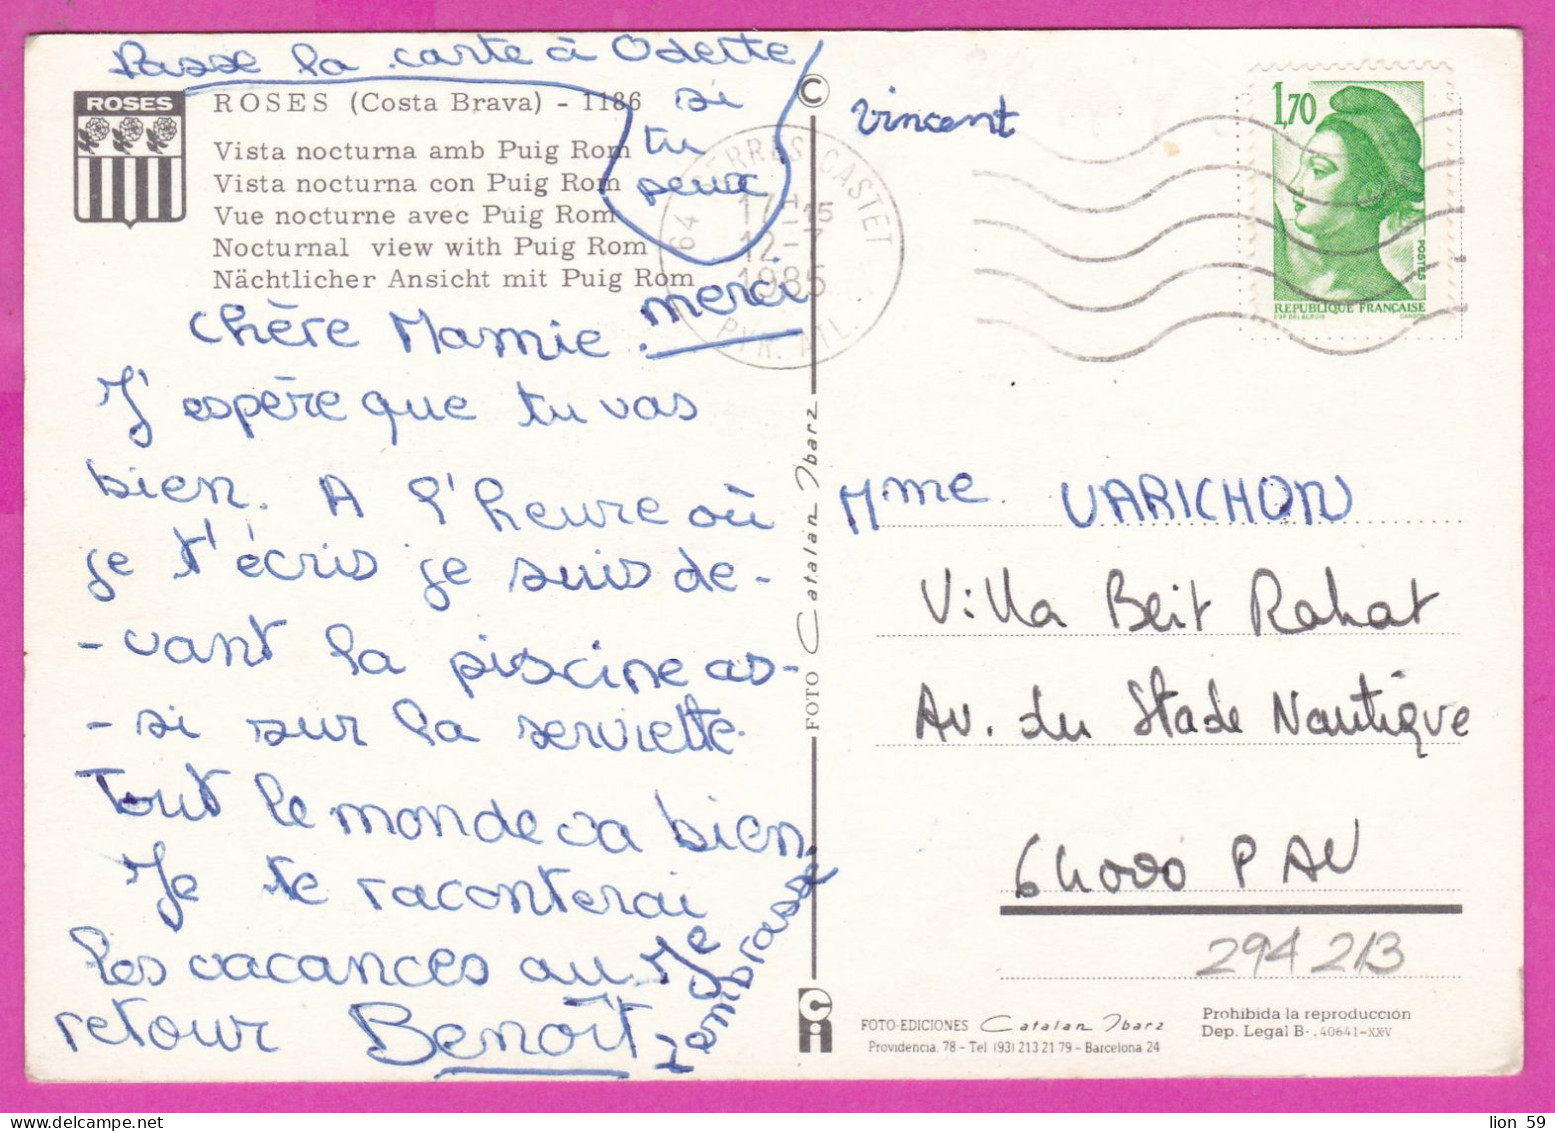 Passe la carte à Odette
si
tu
peux
merci
ROSES
ROSES (Costa Brava) - 1186
Vista nocturna amb Puig Rom
Vista nocturna con Puig Rom
Vue nocturne avec Puig Rom
Nocturnal view with Puig Rom
Nächtlicher Ansicht mit Puig Rom
Chère Mamie.
J'espère que tu vas
bien. A l'heure où
je t'écris je suis de-
-vant la piscine as-
-si sur la serviette.
Tout le monde va bien.
Je te raconterai
les vacances au
retour Benoît
Je
t'embrasse
©
FOTO Catalan Ibarz
vincent
64 SERRES CASTET
17H15
12-7
1985
PYR. ATL.
1,70
POSTES
REPUBLIQUE FRANÇAISE
Mme VARICHON
Villa Beit Rahat
Av. du Stade Nautique
64000 PAU
294 213
FOTO-EDICIONES Catalan Ibarz
Providencia, 78 - Tel (93) 213 21 79 - Barcelona 24
Prohibida la reproducción
Dep. Legal B-. 40641-XXV
lion 59